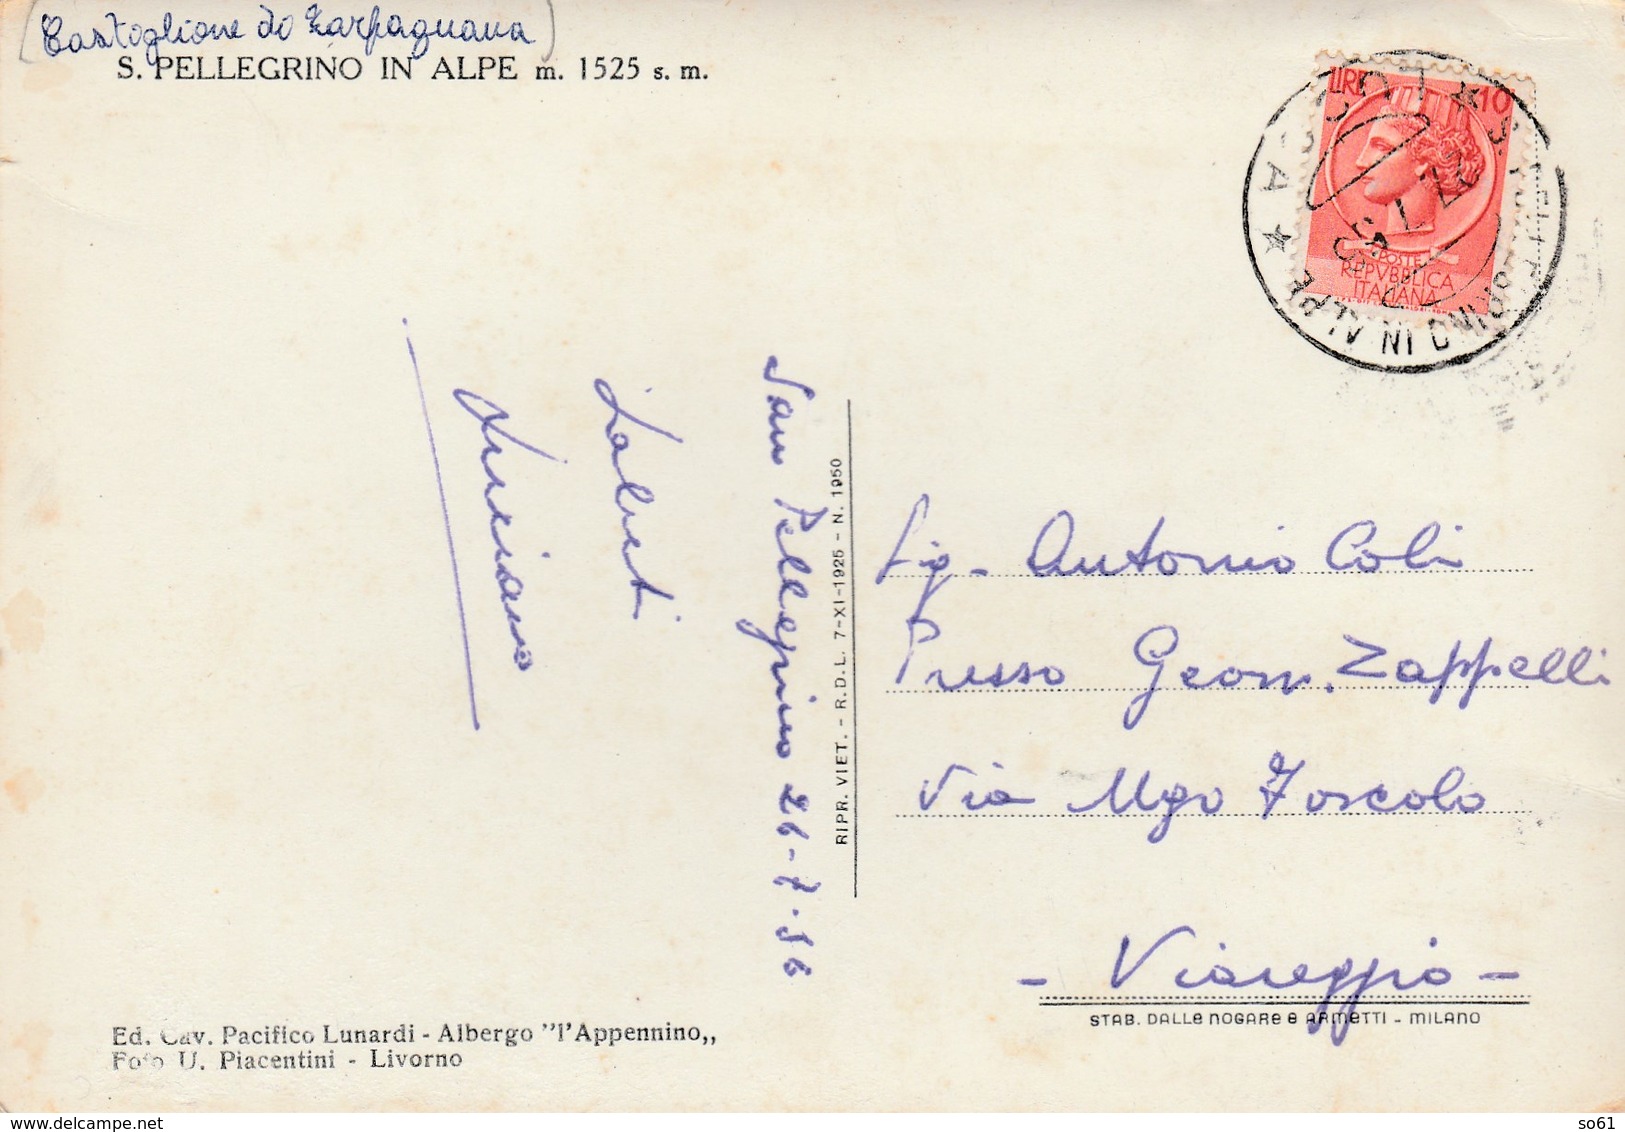 (Castoglione di Garfagnana)
S. PELLEGRINO IN ALPE m. 1525 s. m.
LIRE 10
POSTE
REPVBBLICA
ITALIANA
San Pellegrino 26-7-56
Saluti
Luciano
RIPR. VIET. - R.D.L. 7-XI-1925 - N. 1950
Sig. Antonio Coli
Presso Geom. Zappelli
Via Ugo Foscolo
- Viareggio -
STAB. DALLE NOGARE e ARMETTI - MILANO
Ed. Cav. Pacifico Lunardi - Albergo "l'Appennino,,
Foto U. Piacentini - Livorno
so61